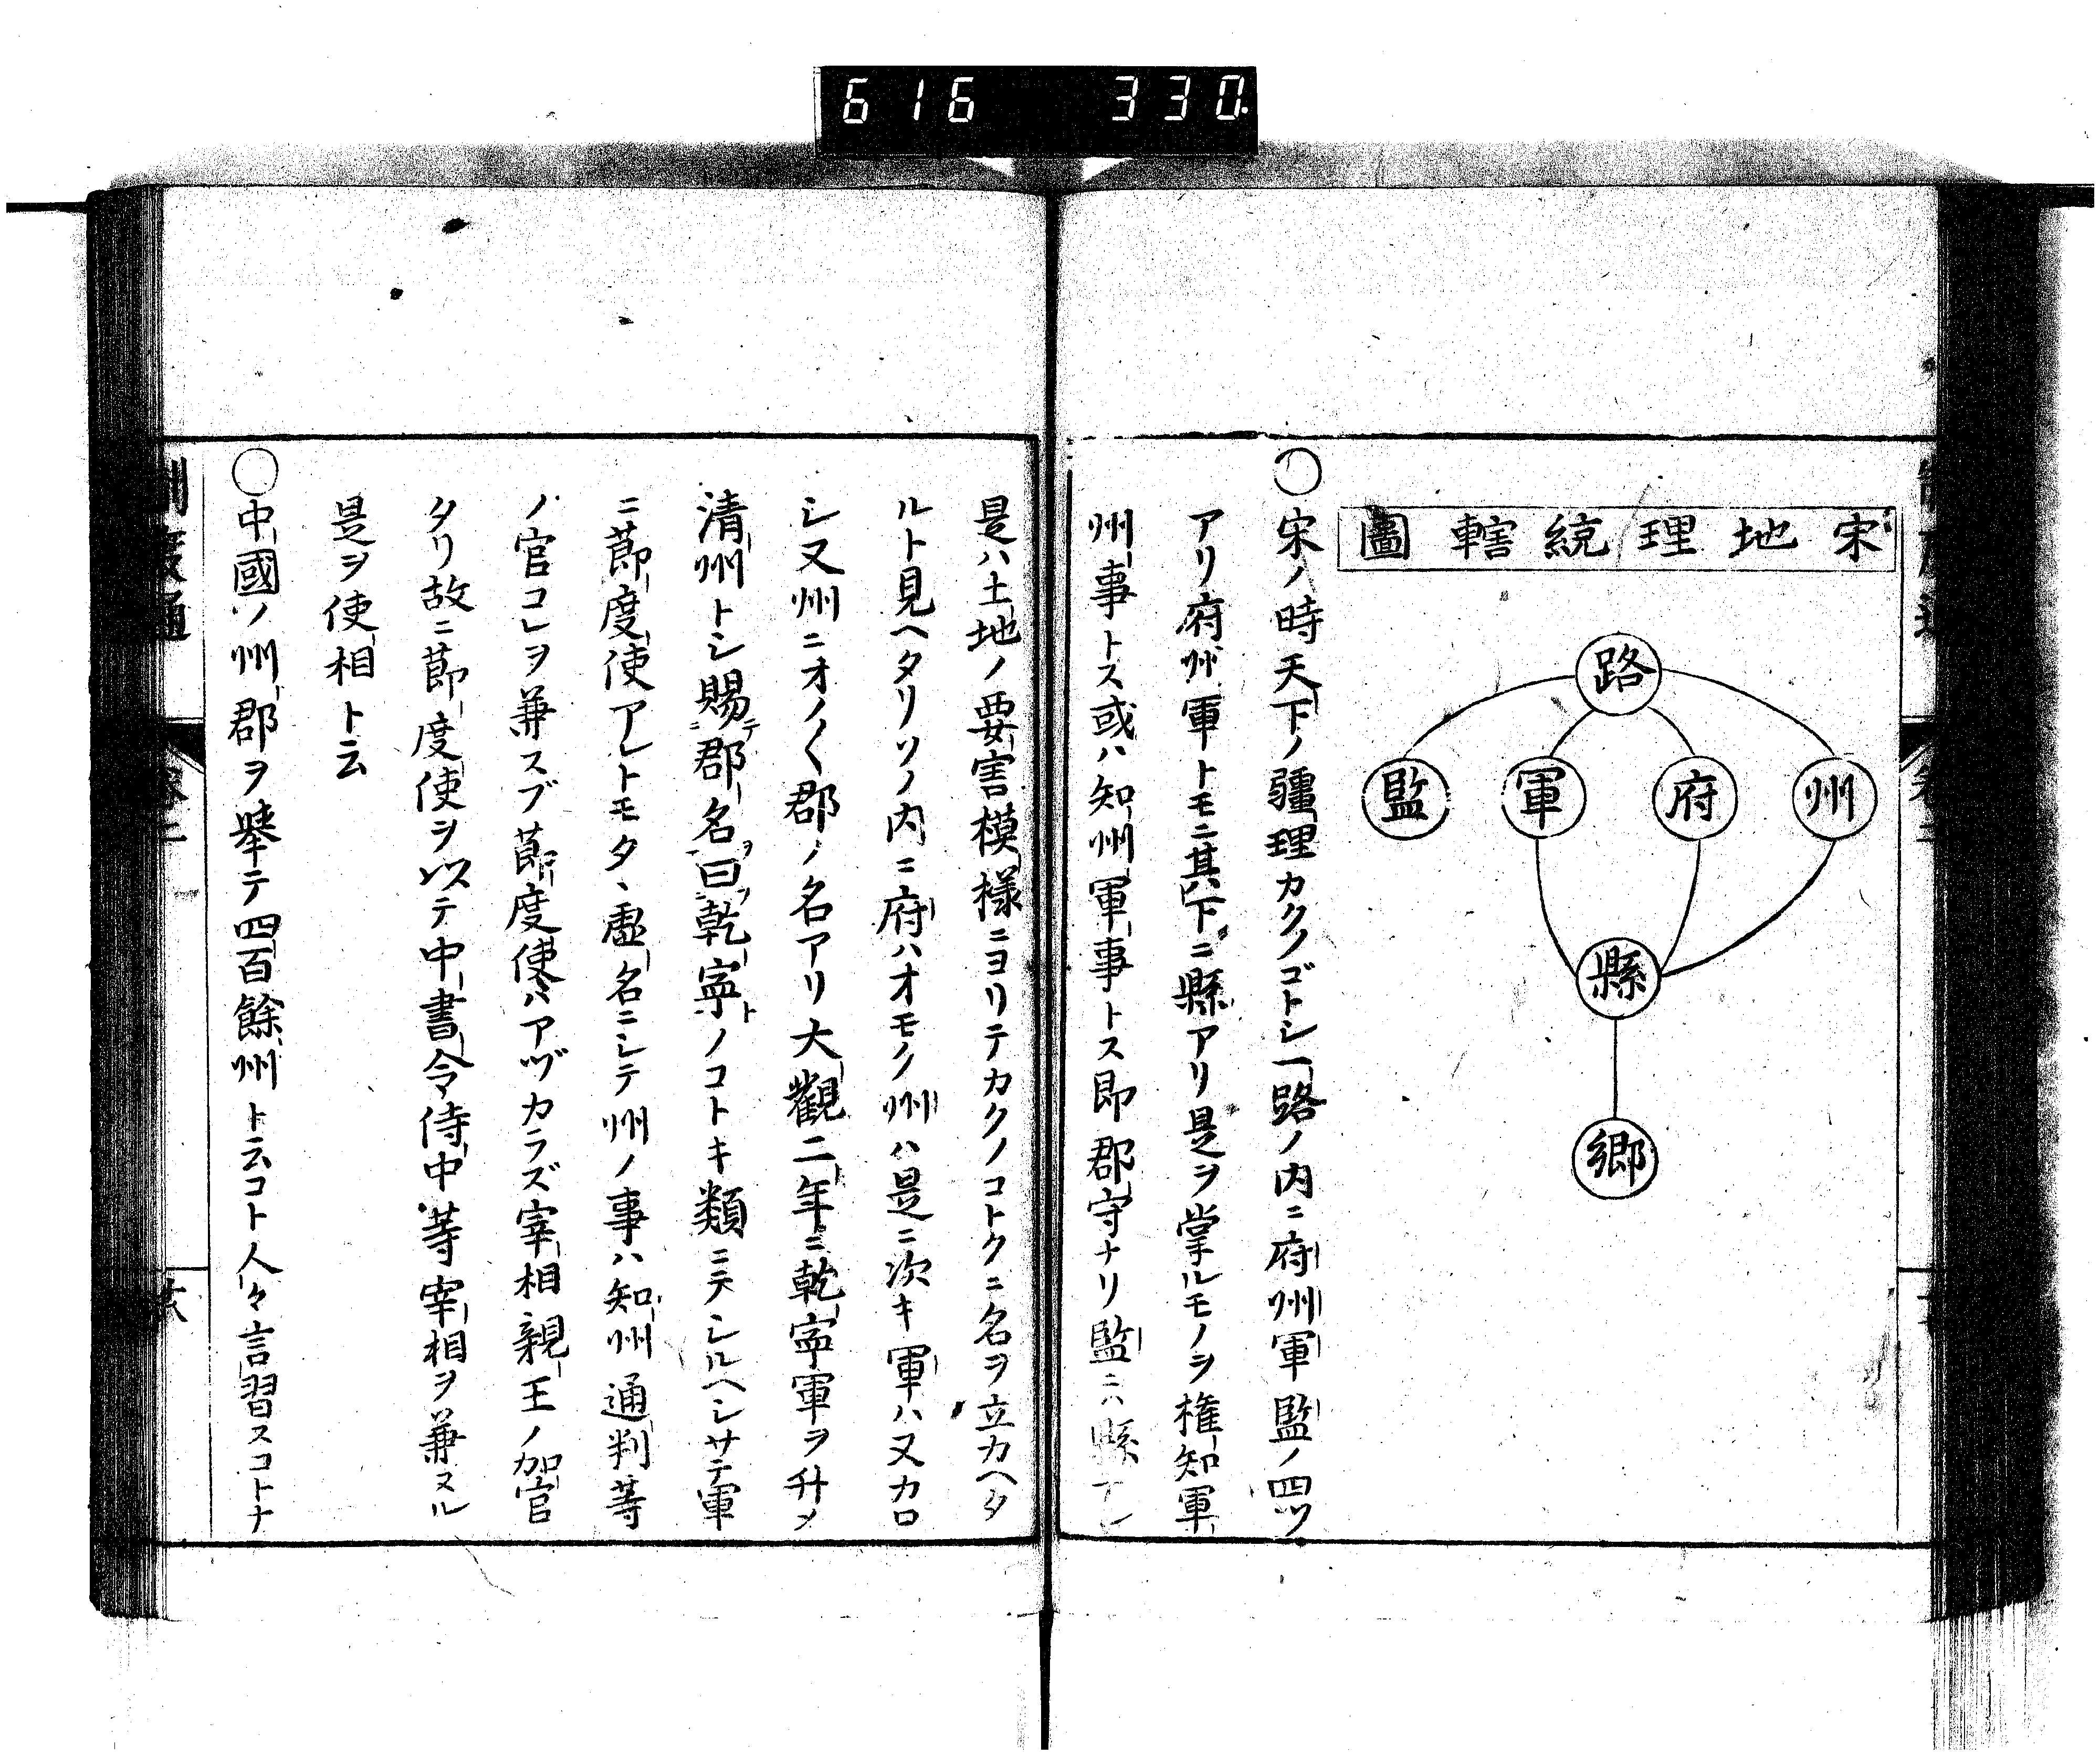 616 330
宋地理統轄圖
路
州
府
軍
監
縣
鄉
〇宋ノ時天下ノ疆理カクノゴトシ一路ノ内ニ府州軍監ノ四ツ
アリ府州軍トモニ其下ニ縣アリ是ヲ掌ルモノヲ権知軍
州事トス或ハ知州軍事トス即郡守ナリ監ニハ縣ナシ
是ハ土地ノ要害模様ニヨリテカクノコトクニ名ヲ立カヘタ
ルト見ヘタリソノ内ニ府ハオモク州ハ是ニ次キ軍ハ又カロ
シ又州ニオノ〱郡ノ名アリ大觀二年ニ乾寧軍ヲ升メ
清州トシ賜テ郡名ヲ曰フ乾寧トノコトキ類ニテシルヘシサテ軍
ニ節度使アレトモタヽ虚名ニシテ州ノ事ハ知州通判等
ノ官コレヲ兼スブ節度使ハアヅカラズ宰相親王ノ加官
タリ故ニ節度使ヲ以テ中書令侍中等宰相ヲ兼ヌル
是ヲ使相ト云
〇中國ノ州郡ヲ擧テ四百餘州ト云コト人々言習スコトナ
制度通
卷二